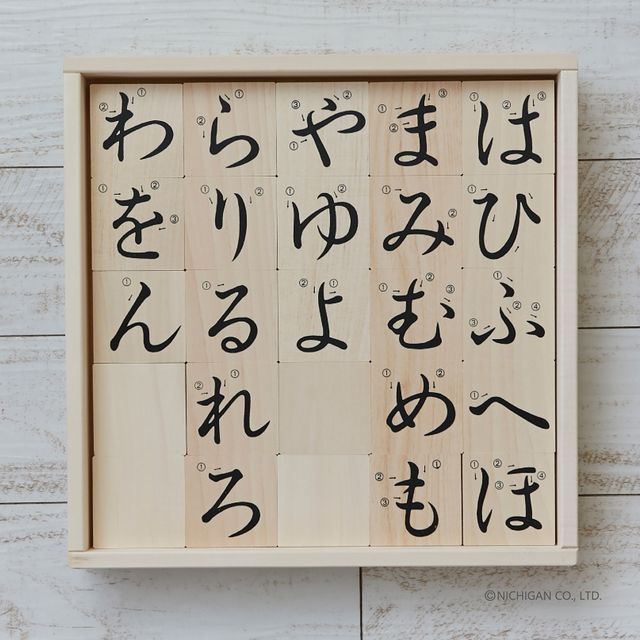 はひふへほ
まみむめも
やゆよ
らりるれろ
わをん
©NICHIGAN CO., LTD.